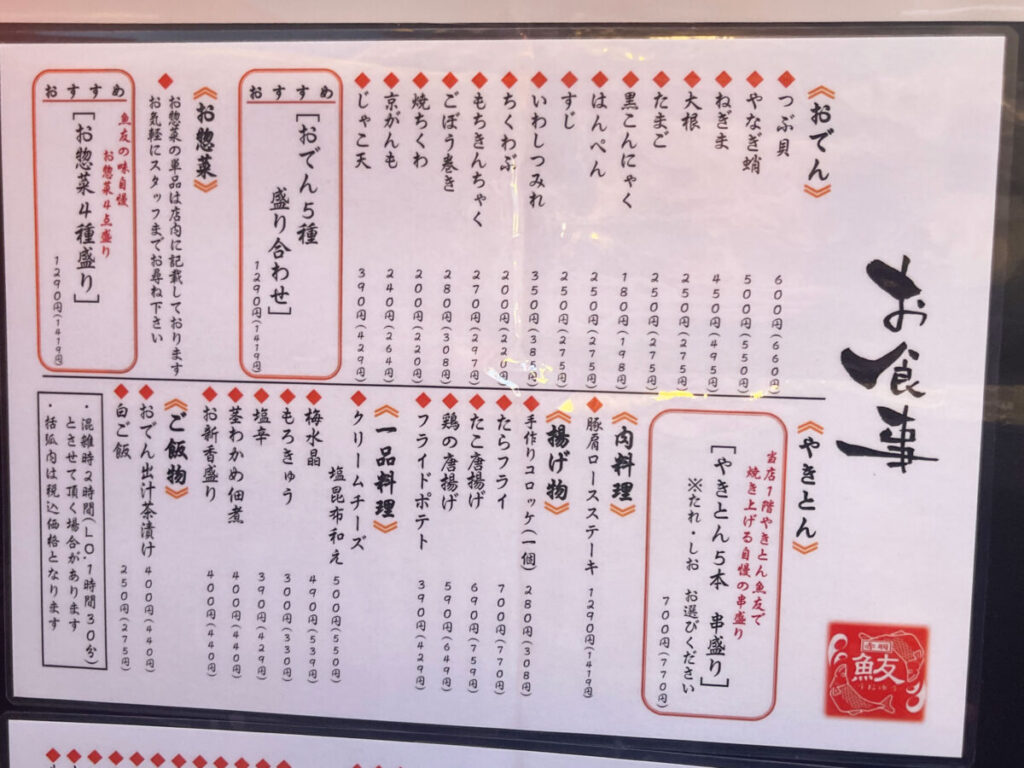 お食事
《おでん》
◆つぶ貝 600円(660円)
◆やなぎ蛸 500円(550円)
◆ねぎま 450円(495円)
◆大根 250円(275円)
◆たまご 250円(275円)
◆黒こんにゃく 180円(198円)
◆はんぺん 250円(275円)
◆すじ 250円(275円)
◆いわしつみれ 350円(385円)
◆ちくわぶ 200円(220円)
◆もちきんちゃく 270円(297円)
◆ごぼう巻き 280円(308円)
◆焼ちくわ 200円(220円)
◆京がんも 240円(264円)
◆じゃこ天 390円(429円)
おすすめ
[おでん5種
盛り合わせ]
1290円(1419円)
《お惣菜》
◆お惣菜の単品は店内に記載しております
お気軽にスタッフまでお尋ね下さい
おすすめ
魚友の味自慢
お惣菜4点盛り
[お惣菜4種盛り]
1290円(1419円)
《やきとん》
当店1階やきとん魚友で
焼き上げる自慢の串盛り
[やきとん5本 串盛り]
※たれ・しお お選びください
700円(770円)
《肉料理》
◆豚肩ロースステーキ 1290円(1419円)
《揚げ物》
◆手作りコロッケ(一個) 280円(308円)
◆たらフライ 700円(770円)
◆たこ唐揚げ 690円(759円)
◆鶏の唐揚げ 590円(649円)
◆フライドポテト 390円(429円)
《一品料理》
◆クリームチーズ
塩昆布和え 500円(550円)
◆梅水晶 490円(539円)
◆もろきゅう 300円(330円)
◆塩辛 390円(429円)
◆茎わかめ佃煮 400円(440円)
◆お新香盛り 400円(440円)
《ご飯物》
◆おでん出汁茶漬け 400円(440円)
◆白ご飯 250円(275円)
・混雑時2時間(L.O.1時間30分)
とさせて頂く場合があります
・括弧内は税込価格となります
魚友